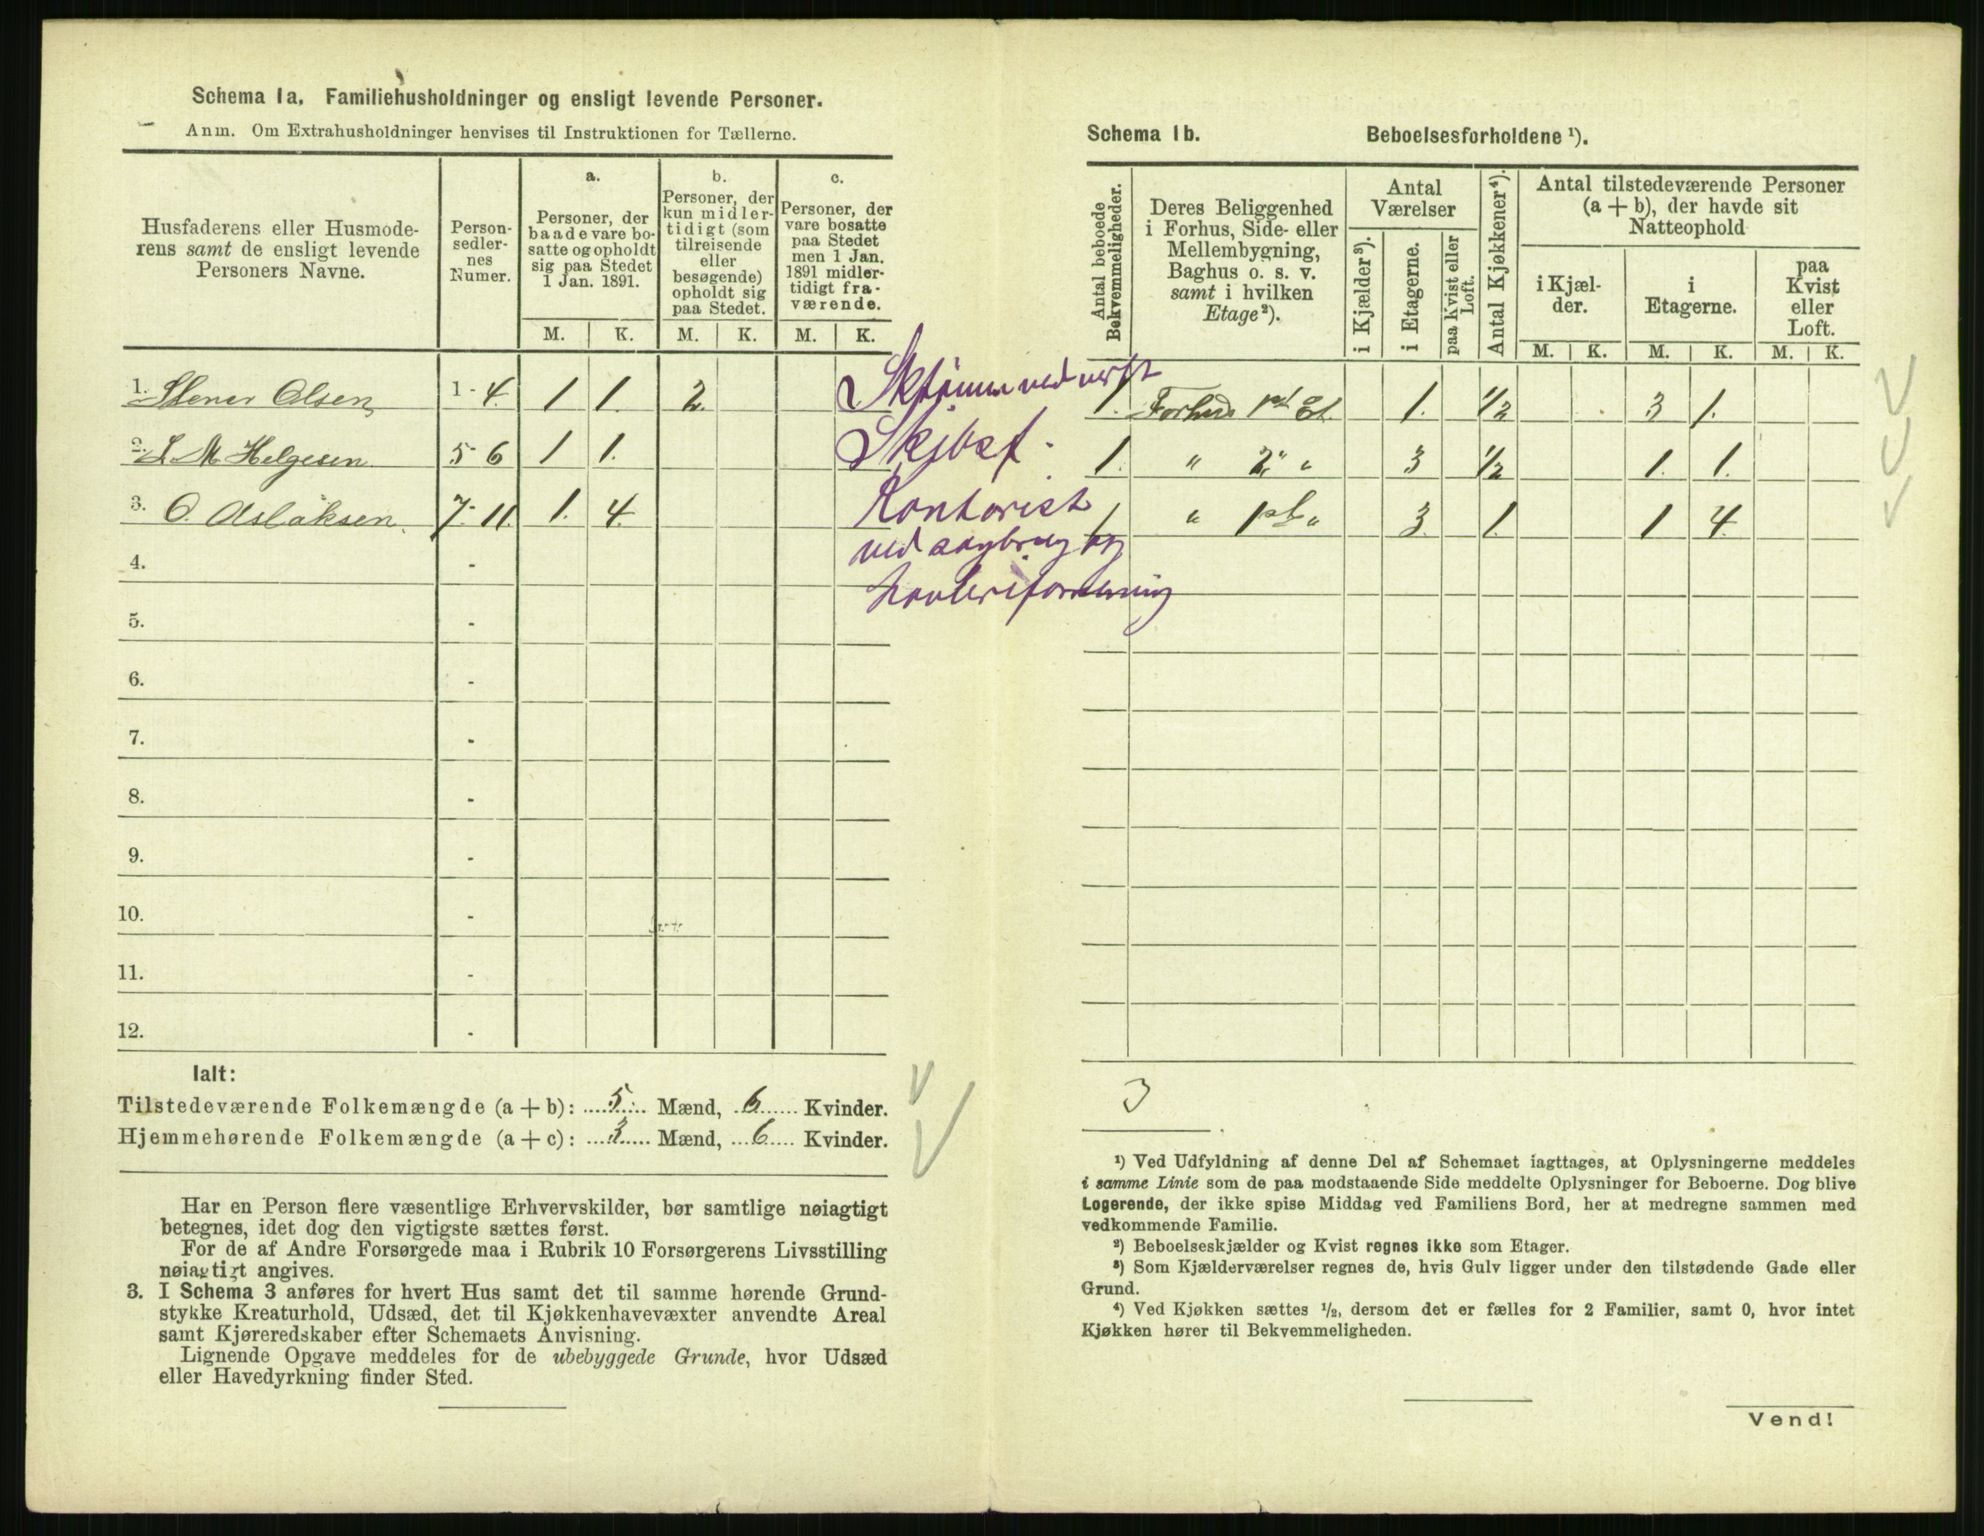 Schema 1a. Familiehusholdninger og ensligt levende Personer.
Anm. Om Extrahusholdninger henvises til Instruktionen for Tællerne.
Husfaderens eller Husmoderens samt de ensligt levende Personers Navne.
Personsedlernes Numer.
a.
Personer, der baade vare bosatte og opholdt sig paa Stedet 1 Jan. 1891.
b.
Personer, der kun midlertidigt (som tilreisende eller besøgende) opholdt sig paa Stedet.
c.
Personer, der vare bosatte paa Stedet men 1 Jan. 1891 midlertidigt fraværende.
M. K. M. K. M. K.
1. Stener Olsen 1-4. 1 1. 2.
2. L M Helgesen 5-6 1 1.
3. O. Aslaksen. 7-11. 1. 4.
4. -
5. -
6. -
7. -
8. -
9. -
10. -
11. -
12. -
Skibsf.
Kontorist
ved sagbrug og
høvleriforretning
Ialt:
Tilstedeværende Folkemængde (a + b): 5 Mænd, 6 Kvinder.
Hjemmehørende Folkemængde (a + c): 3 Mænd, 6 Kvinder.
Har en Person flere væsentlige Erhvervskilder, bør samtlige nøiagtigt
betegnes, idet dog den vigtigste sættes først.
For de af Andre Forsørgede maa i Rubrik 10 Forsørgerens Livsstilling
nøiagtigt angives.
3. I Schema 3 anføres for hvert Hus samt det til samme hørende Grund-
stykke Kreaturhold, Udsæd, det til Kjøkkenhavevæxter anvendte Areal
samt Kjøreredskaber efter Schemaets Anvisning.
Lignende Opgave meddeles for de ubebyggede Grunde, hvor Udsæd
eller Havedyrkning finder Sted.
Schema 1b. Beboelsesforholdene ¹).
Antal beboede Bekvemmeligheder.
Deres Beliggenhed i Forhus, Side- eller Mellembygning, Baghus o. s. v. samt i hvilken Etage²).
Antal Værelser
i Kjælder³).
i Etagerne.
paa Kvist eller Loft.
Antal Kjøkkener⁴).
Antal tilstedeværende Personer (a + b), der havde sit Natteophold
i Kjælder.
i Etagerne.
paa Kvist eller Loft.
M. K. M. K. M. K.
1. Forhus 1st Et. 1. 1/2 3 1.
1. " 2. " 3 1/2 1. 1.
1 " 1st " 3. 1. 1 4.
3
¹) Ved Udfyldning af denne Del af Schemaet iagttages, at Oplysningerne meddeles
i samme Linie som de paa modstaaende Side meddelte Oplysninger for Beboerne. Dog blive
Logerende, der ikke spise Middag ved Familiens Bord, her at medregne sammen med
vedkommende Familie.
²) Beboelseskjælder og Kvist regnes ikke som Etager.
³) Som Kjælderværelser regnes de, hvis Gulv ligger under den tilstødende Gade eller
Grund.
⁴) Ved Kjøkken sættes ½, dersom det er fælles for 2 Familier, samt 0, hvor intet
Kjøkken hører til Bekvemmeligheden.
Vend!